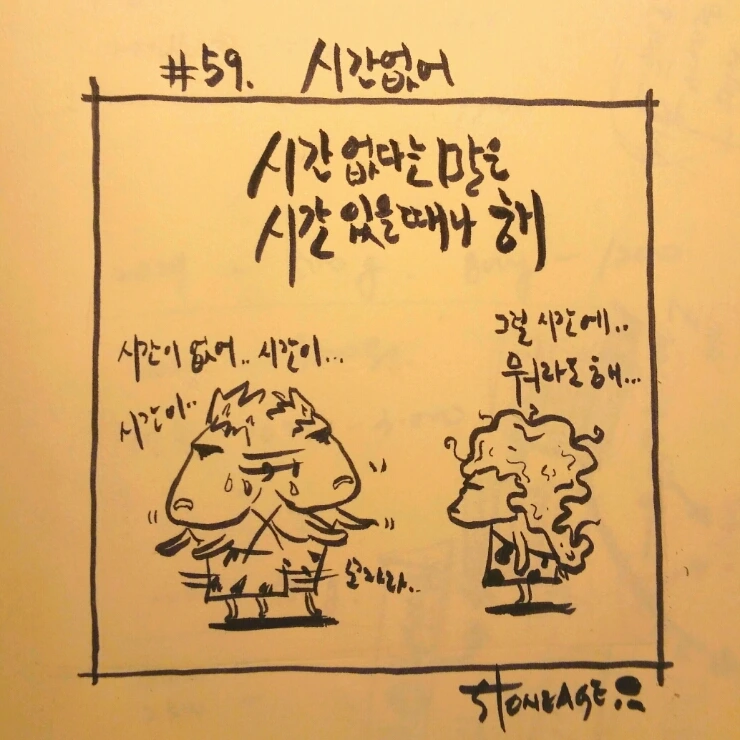 #59. 시간없어
시간 없다는 말은
시간 있을때나 해
시간이 없어.. 시간이...
시간이..
그럴 시간에..
뭐라도 해...
모자라..
STONEAGE